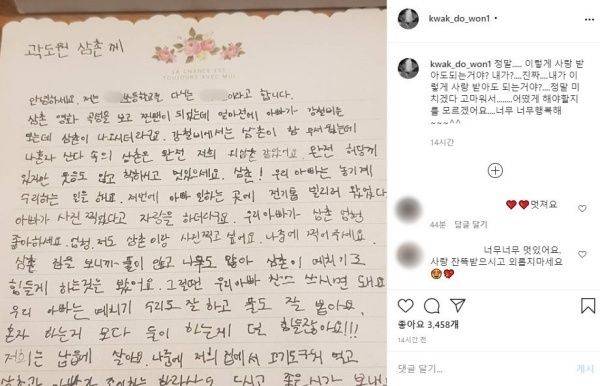 곽도원 삼촌 께
LA CHANCE EST
TOUJOURS AVEC MOI
안녕하세요. 저는 초등학교를 다니는 이라고 합니다.
삼촌 영화 곡성을 보고 찐팬이 되었는데 얼마전에 아빠가 강철비를
봤는데 삼촌이 나오시더라구요. 강철비에서는 삼촌이 참 무서웠는데
나혼자 산다 속의 삼촌은 완전 저희 외삼촌 같았어요. 완전 허당끼
있지만 웃음도 많고 착하시고 멋있으세요. 삼촌! 우리 아빠는 농기계
수리하는 일을 해요. 저번에 아빠 일하는 곳에 전기톱 빌리러 왔었다
아빠가 사진찍었다고 자랑을 하더라구요. 우리아빠가 삼촌 엄청
좋아하세요. 엄청. 저도 삼촌이랑 사진찍고 싶어요. 나중에 찍어주세요.
삼촌 집을 보니까 풀이 많고 나무도 많아 삼촌이 예치기로
힘들게 하는것을 봤어요. 그럴땐 우리아빠 찬스 쓰시면 돼요
우리 아빠는 예치기 수리도 잘 하고 풀도 잘 뽑아요.
혼자 하는거 보다 둘이 하는게 덜 힘들잖아요!!!
저희는 납읍에 살아요. 나중에 저희 집에서 고기도구워 먹고
kwak_do_won1
kwak_do_won1 정말.... 이렇게 사랑 받
아도되는거야? 내가?....진짜....내가 이
렇게 사랑 받아도 되는거야?....정말 미
치겠다 고마워서.......어떻게 해야할지
를 모르겠어요....너무 너무행복해
~~~^^
14시간
❤️❤️멋져요
44분 답글 달기
너무너무 멋있어요.
사랑 잔뜩받으시고 외롭지마세요
😍❤️
좋아요 3,458개
14시간 전
댓글 달기...
게시